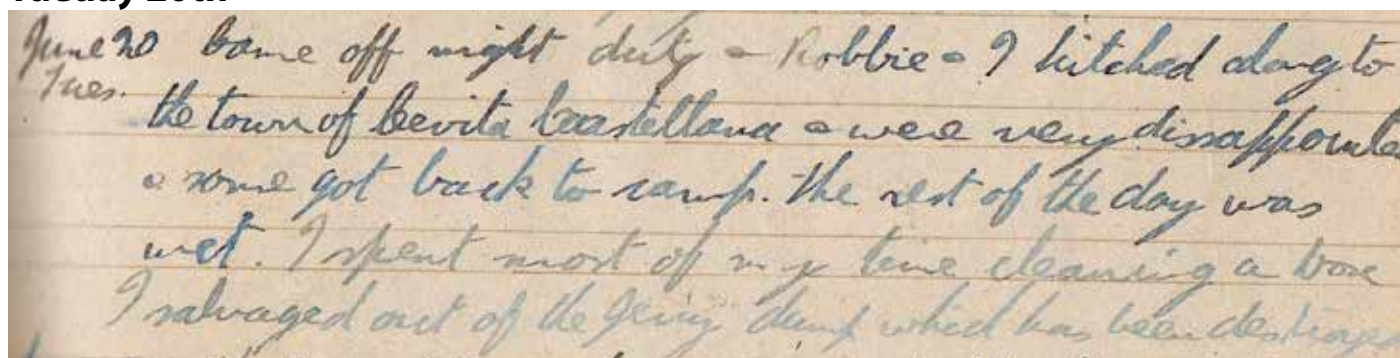 June 20 Came off night duty & Robbie & I hitched along to
Tues.
the town of Cevita Castellana & were very dissappointe
& some got back to camp. The rest of the day was
wet. I spent most of my time cleaning a box
I salvaged out of the Jerry dump which has been destroye